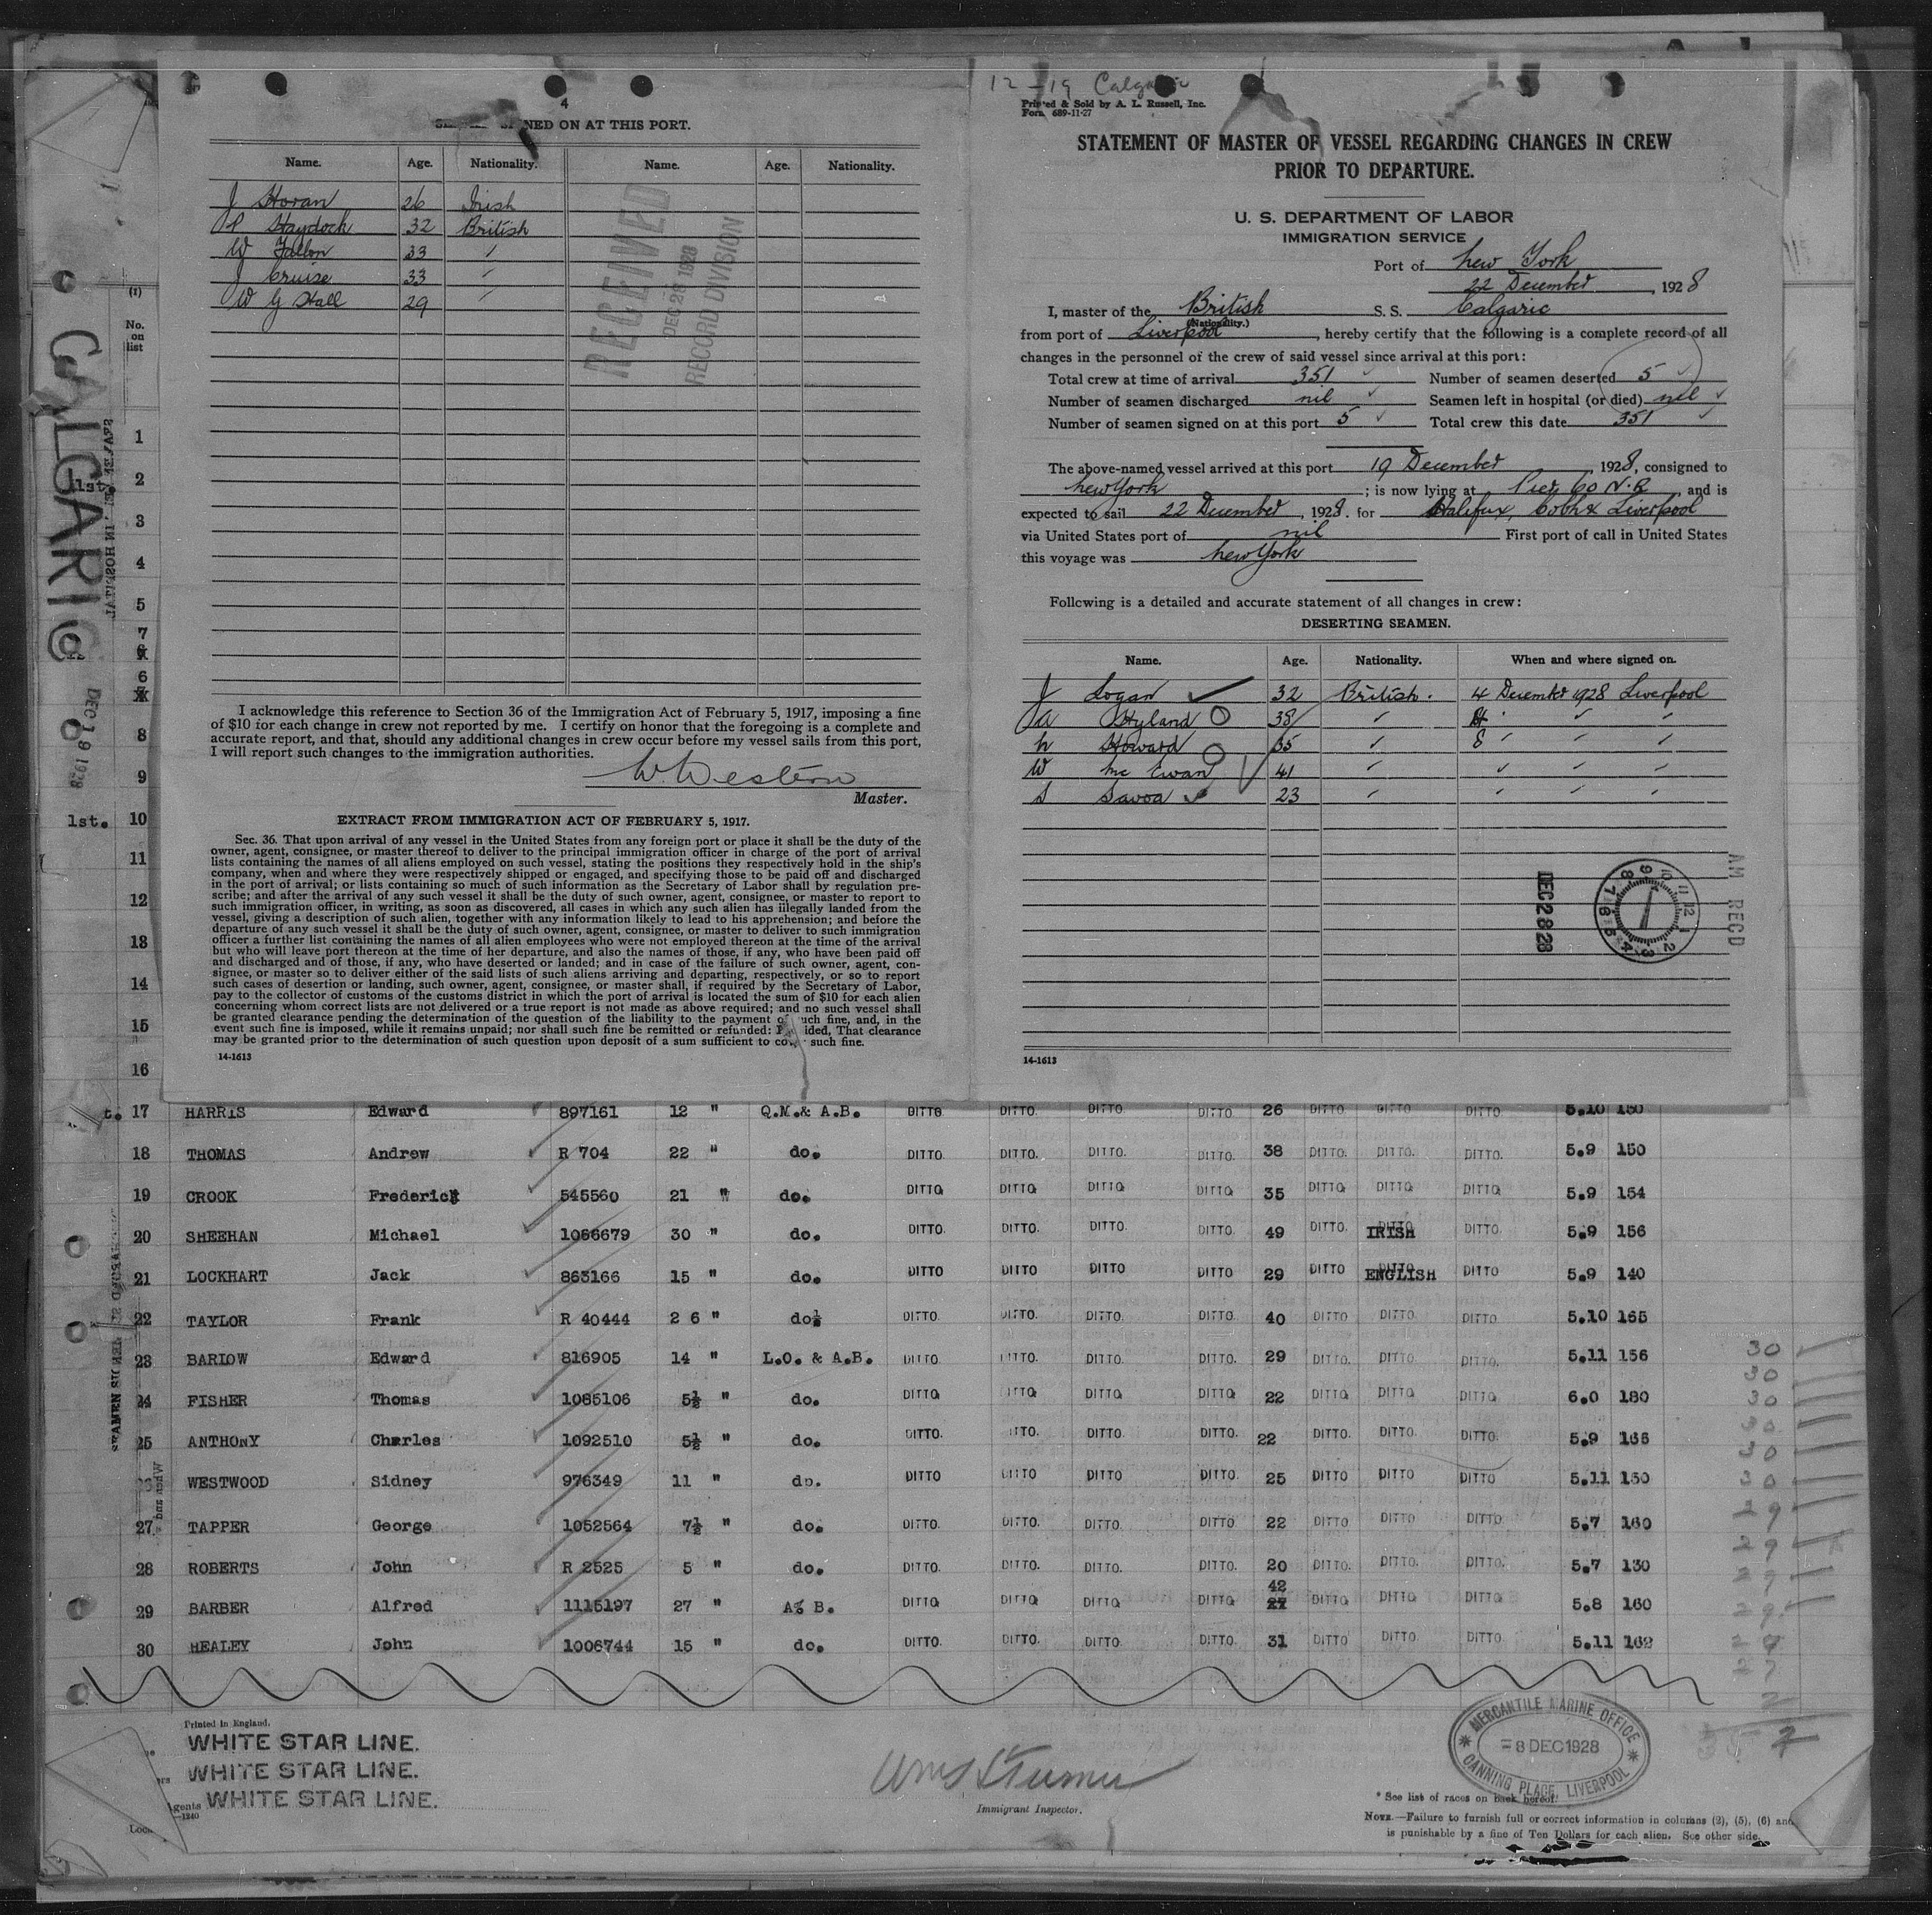 4
SIGNED ON AT THIS PORT.
Name. Age. Nationality. Name. Age. Nationality.
J Horan 26 Irish
P Haydock 32 British
W Fallon 33 "
J Cruise 33 "
W G Hall 29 "
RECEIVED
DEC 28 1928
RECORD DIVISION
I acknowledge this reference to Section 36 of the Immigration Act of February 5, 1917, imposing a fine
of $10 for each change in crew not reported by me. I certify on honor that the foregoing is a complete and
accurate report, and that, should any additional changes in crew occur before my vessel sails from this port,
I will report such changes to the immigration authorities.
W. Western
Master.
EXTRACT FROM IMMIGRATION ACT OF FEBRUARY 5, 1917.
Sec. 36. That upon arrival of any vessel in the United States from any foreign port or place it shall be the duty of the
owner, agent, consignee, or master thereof to deliver to the principal immigration officer in charge of the port of arrival
lists containing the names of all aliens employed on such vessel, stating the positions they respectively hold in the ship's
company, when and where they were respectively shipped or engaged, and specifying those to be paid off and discharged
in the port of arrival; or lists containing so much of such information as the Secretary of Labor shall by regulation pre-
scribe; and after the arrival of any such vessel it shall be the duty of such owner, agent, consignee, or master to report to
such immigration officer, in writing, as soon as discovered, all cases in which any such alien has illegally landed from the
vessel, giving a description of such alien, together with any information likely to lead to his apprehension; and before the
departure of any such vessel it shall be the duty of such owner, agent, consignee, or master to deliver to such immigration
officer a further list containing the names of all alien employees who were not employed thereon at the time of the arrival
but who will leave port thereon at the time of her departure, and also the names of those, if any, who have been paid off
and discharged and of those, if any, who have deserted or landed; and in case of the failure of such owner, agent, con-
signee, or master so to deliver either of the said lists of such aliens arriving and departing, respectively, or so to report
such cases of desertion or landing, such owner, agent, consignee, or master shall, if required by the Secretary of Labor,
pay to the collector of customs of the customs district in which the port of arrival is located the sum of $10 for each alien
concerning whom correct lists are not delivered or a true report is not made as above required; and no such vessel shall
be granted clearance pending the determination of the question of the liability to the payment of such fine, and, in the
event such fine is imposed, while it remains unpaid; nor shall such fine be remitted or refunded: Provided, That clearance
may be granted prior to the determination of such question upon deposit of a sum sufficient to cover such fine.
14-1613
12-19 Calgaric
Printed & Sold by A. L. Russell, Inc.
Form 689-11-27
STATEMENT OF MASTER OF VESSEL REGARDING CHANGES IN CREW
PRIOR TO DEPARTURE.
U. S. DEPARTMENT OF LABOR
IMMIGRATION SERVICE
Port of New York
22 December, 1928
I, master of the British S. S. Calgaric
(Nationality.)
from port of Liverpool, hereby certify that the following is a complete record of all
changes in the personnel of the crew of said vessel since arrival at this port:
Total crew at time of arrival 351 Number of seamen deserted 5
Number of seamen discharged nil Seamen left in hospital (or died) nil
Number of seamen signed on at this port 5 Total crew this date 351
The above-named vessel arrived at this port 19 December, 1928, consigned to
New York; is now lying at Pier 60 N.R, and is
expected to sail 22 December, 1928. for Halifax, Cobh & Liverpool
via United States port of nil First port of call in United States
this voyage was New York
Following is a detailed and accurate statement of all changes in crew:
DESERTING SEAMEN.
Name. Age. Nationality. When and where signed on.
J Logan 32 British. 4 December 1928 Liverpool
A Hyland 38 " " "
N Howard 35 " 8 " " "
W Mc Ewan 41 " " " "
S Savoa 23 " " " "
AM RECD
DEC 28 28
14-1613
CALGARIC
DEC 19 1928
(1)
No. on list
1
1st. 2
3
4
5
7
6
8
9
1st. 10
11
12
13
14
15
16
17 HARRIS Edward 897161 12 " Q.M.& A.B. DITTO DITTO. DITTO DITTO 26 DITTO. DITTO DITTO 5.10 150
18 THOMAS Andrew R 704 22 " do. DITTO. DITTO. DITTO. DITTO. 38 DITTO. DITTO. DITTO. 5.9 150
19 CROOK Frederick 545560 21 " do. DITTO DITTO DITTO DITTO 35 DITTO DITTO DITTO 5.9 154
20 SHEEHAN Michael 1066679 30 " do. DITTO. DITTO. DITTO. DITTO. 49 DITTO. IRISH DITTO. 5.9 156
21 LOCKHART Jack 863166 15 " do. DITTO DITTO DITTO DITTO 29 DITTO ENGLISH DITTO 5.9 140
22 TAYLOR Frank R 40444 2 6 " do DITTO. DITTO. DITTO. DITTO. 40 DITTO DITTO. DITTO 5.10 165
23 BARLOW Edward 816905 14 " L.O. & A.B. DITTO. DITTO. DITTO. DITTO. 29 DITTO. DITTO. DITTO. 5.11 156
24 FISHER Thomas 1085106 5½ " do. DITTO DITTO DITTO DITTO 22 DITTO DITTO DITTO 6.0 180
25 ANTHONY Charles 1092510 5½ " do. DITTO. DITTO. DITTO. DITTO. 22 DITTO. DITTO. DITTO. 5.9 166
26 WESTWOOD Sidney 976349 11 " do. DITTO DITTO DITTO DITTO. 25 DITTO DITTO DITTO 5.11 150
27 TAPPER George 1052564 7½ " do. DITTO. DITTO. DITTO. DITTO 22 DITTO DITTO DITTO. 5.7 160
28 ROBERTS John R 2525 5 " do. DITTO. DITTO. DITTO. DITTO. 20 DITTO. DITTO. DITTO. 5.7 130
29 BARBER Alfred 1115197 27 " A. B. DITTO DITTO DITTO DITTO 42 DITTO DITTO DITTO 5.8 160
30 HEALEY John 1006744 15 " do. DITTO. DITTO. DITTO. DITTO. 31 DITTO DITTO. DITTO. 5.11 162
Printed in England.
WHITE STAR LINE.
WHITE STAR LINE.
Agents WHITE STAR LINE.
Immigrant Inspector.
MERCANTILE MARINE OFFICE
8 DEC 1928
CANNING PLACE, LIVERPOOL
* See list of races on back hereof.
NOTE.—Failure to furnish full or correct information in columns (2), (5), (6) and
is punishable by a fine of Ten Dollars for each alien. See other side.